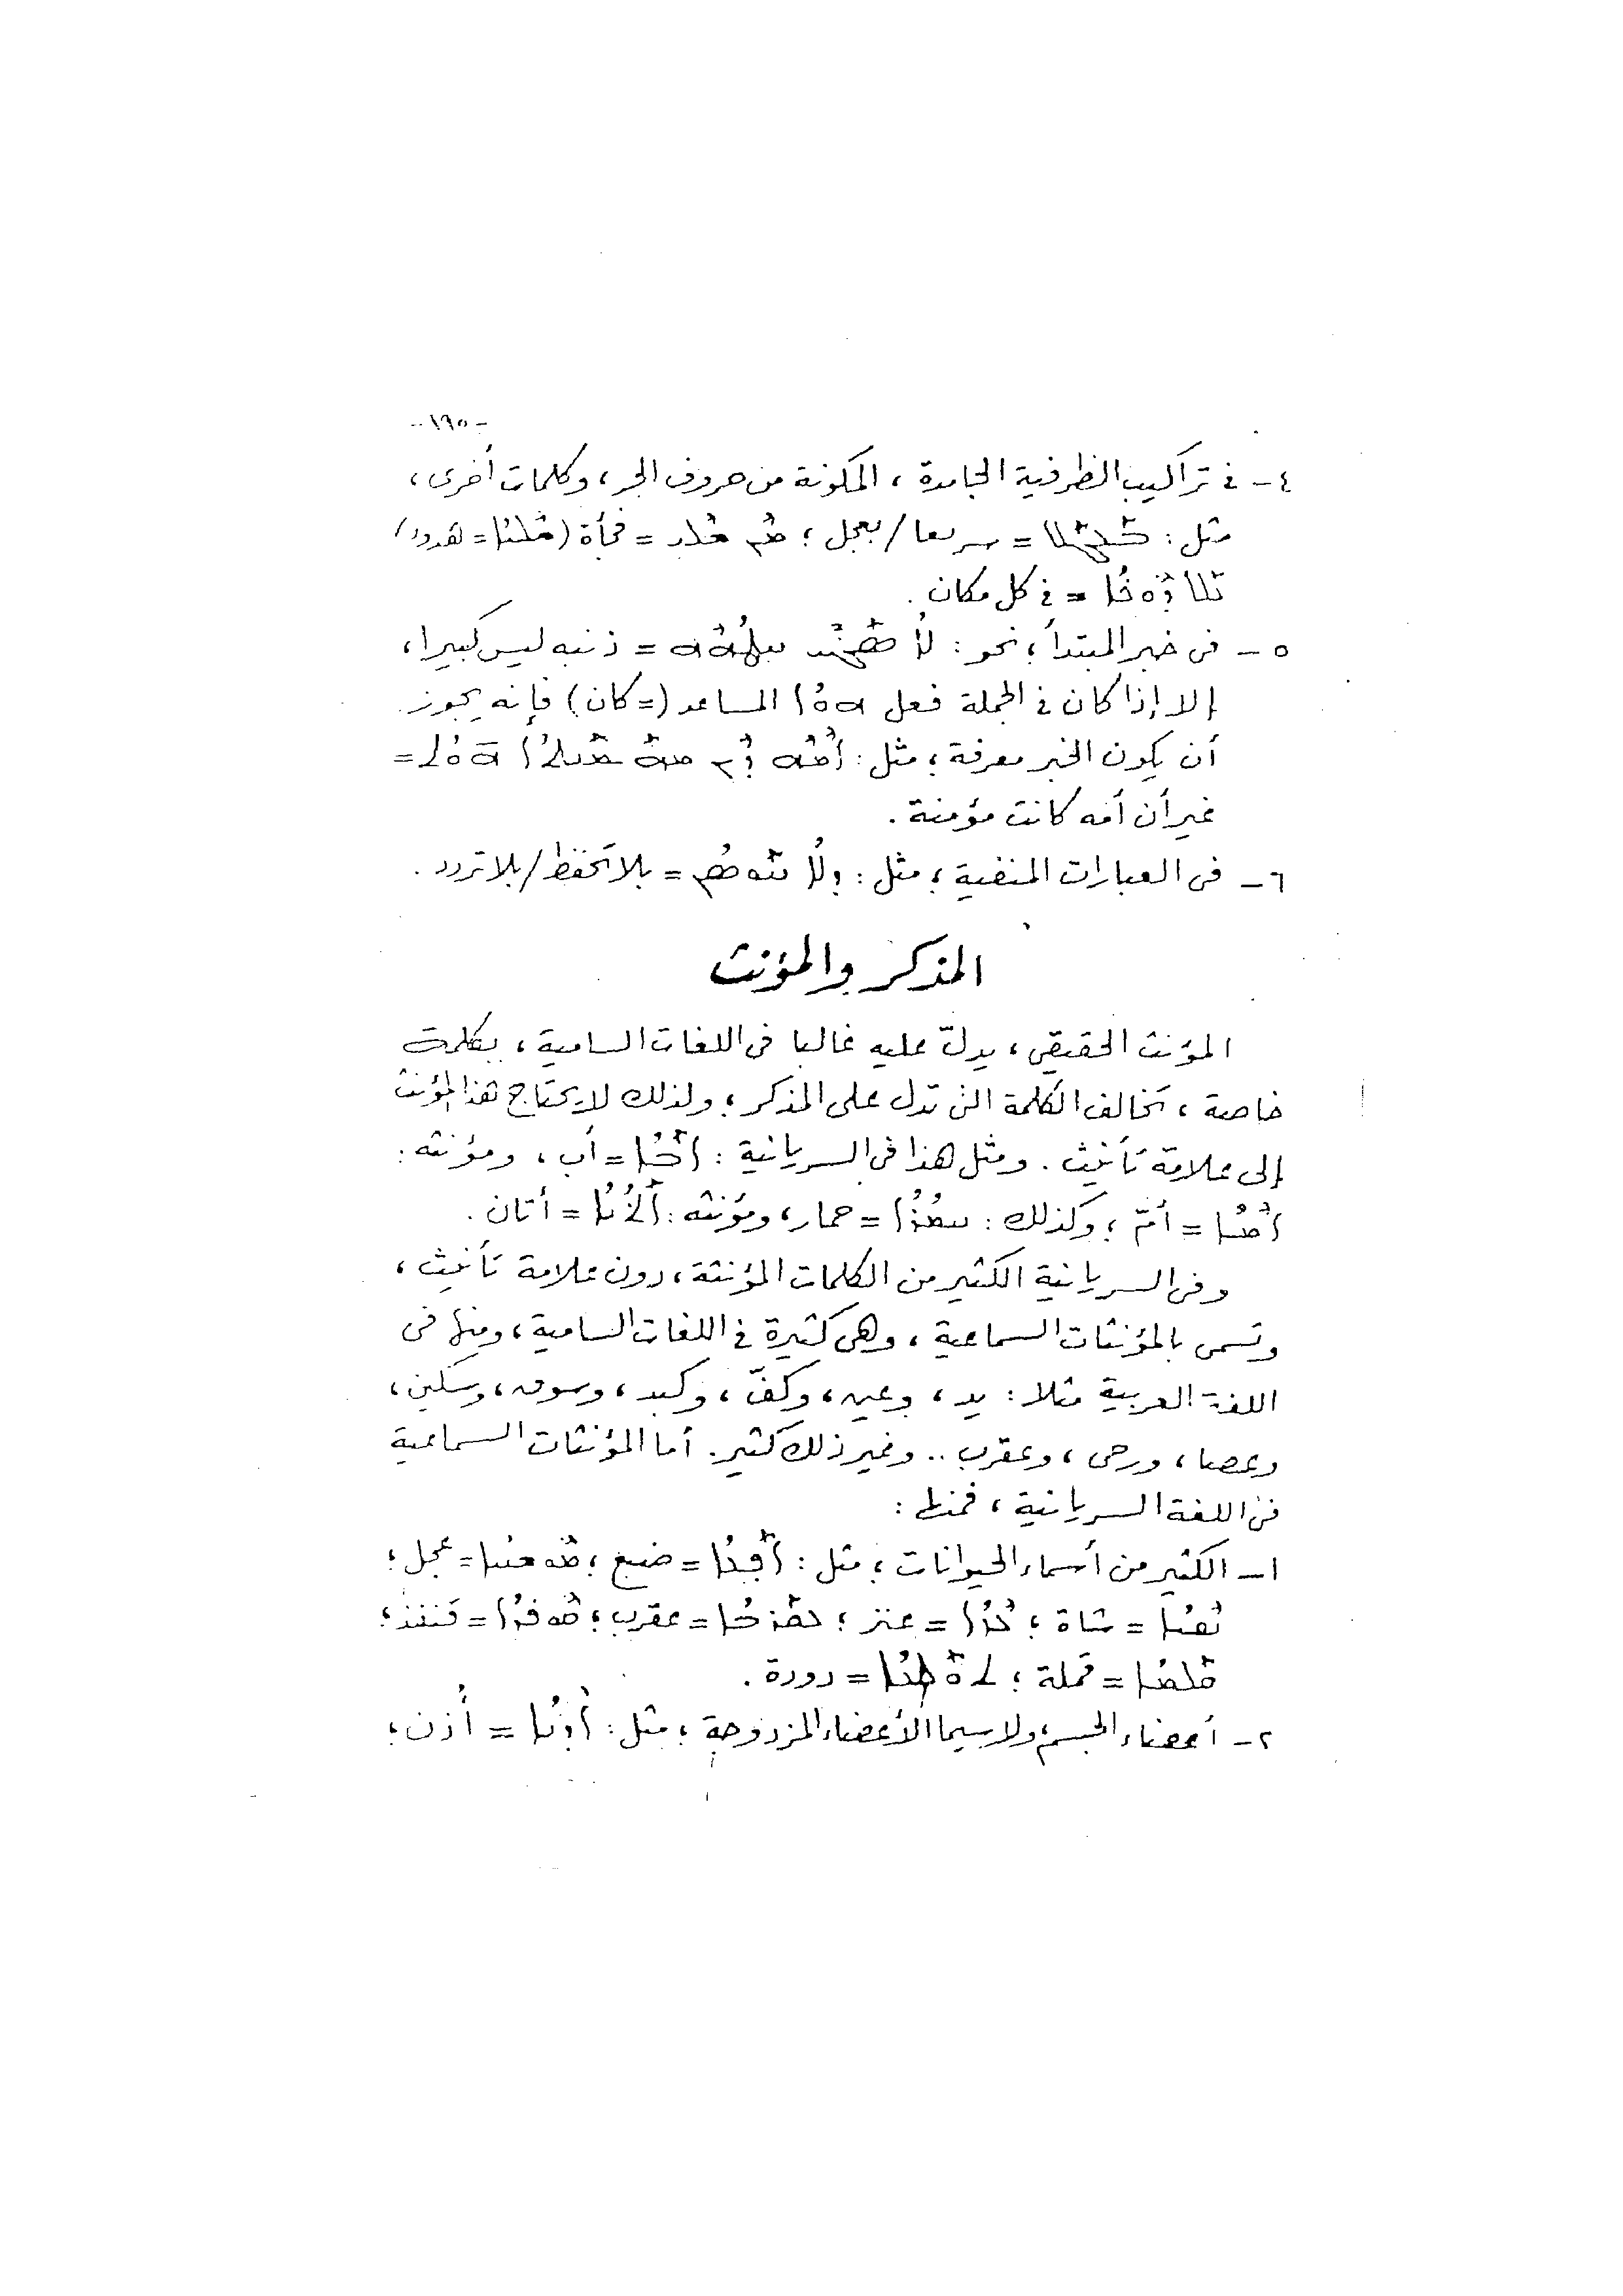 - ١٩٥ -
٤ - في تراكيب الظرفية الجامدة ، المكونة من حروف الجر ، وكلمات أخرى ،
مثل : = سريعا / بعجل ؛ ܡܢ ܫܠܝ = فجأة ( ܫܠܝܐ = هدوء )
= في كل مكان .
٥ - في خبر المبتدأ ؛ نحو : ܠܐ ܣܓܝ ܚܛܗܘܗܝ = ذنبه ليس كبيرا ،
إلا إذا كان في الجملة فعل ܗܘܐ المساعد ( = كان ) فإنه يجوز
أن يكون الخبر معرفة ؛ مثل : ܐܡܗ ܕܝܢ ܗܘܬ =
غير أن أمه كانت مؤمنة .
٦ - في العبارات المنفية ؛ مثل : ܕܠܐ = بلا تحفظ / بلا تردد .
المذكر والمؤنث
المؤنث الحقيقي ، يدلّ عليه غالبا في اللغات السامية ، بكلمة
خاصة ، تخالف الكلمة التى تدل على المذكر ؛ ولذلك لا يحتاج هذا المؤنث
إلى علامة تأنيث . ومثل هذا في السريانية : ܐܒܐ = أب ، ومؤنثه :
ܐܡܐ = أمّ ؛ وكذلك : ܚܡܪܐ = حمار ، ومؤنثه : ܐܬܢܐ = أتان .
وفى السريانية الكثير من الكلمات المؤنثة ، دون علامة تأنيث ،
وتسمى بالمؤنثات السماعية ، وهى كثيرة في اللغات السامية ، ومنها فى
اللغة العربية مثلا : يد ، وعين ، وكفّ ، وكبد ، وسوق ، وسكين ،
وعصا ، ورحى ، وعقرب .. وغير ذلك كثير . أما المؤنثات السماعية
في اللغة السريانية ، فمنها :
١ - الكثير من أسماء الحيوانات ؛ مثل : ܐܦܥܐ = ضبع ؛ = عجل ؛
ܢܩܝܐ = شاة ؛ ܥܙܐ = عنز ؛ ܥܩܪܒܐ = عقرب ؛ ܩܘܦܕܐ = قنفذ ؛
ܩܠܡܐ = قملة ؛ ܬܘܠܥܐ = دودة .
٢ - أعضاء الجسم ولا سيما الأعضاء المزدوجة ؛ مثل : ܐܕܢܐ = أذن ؛